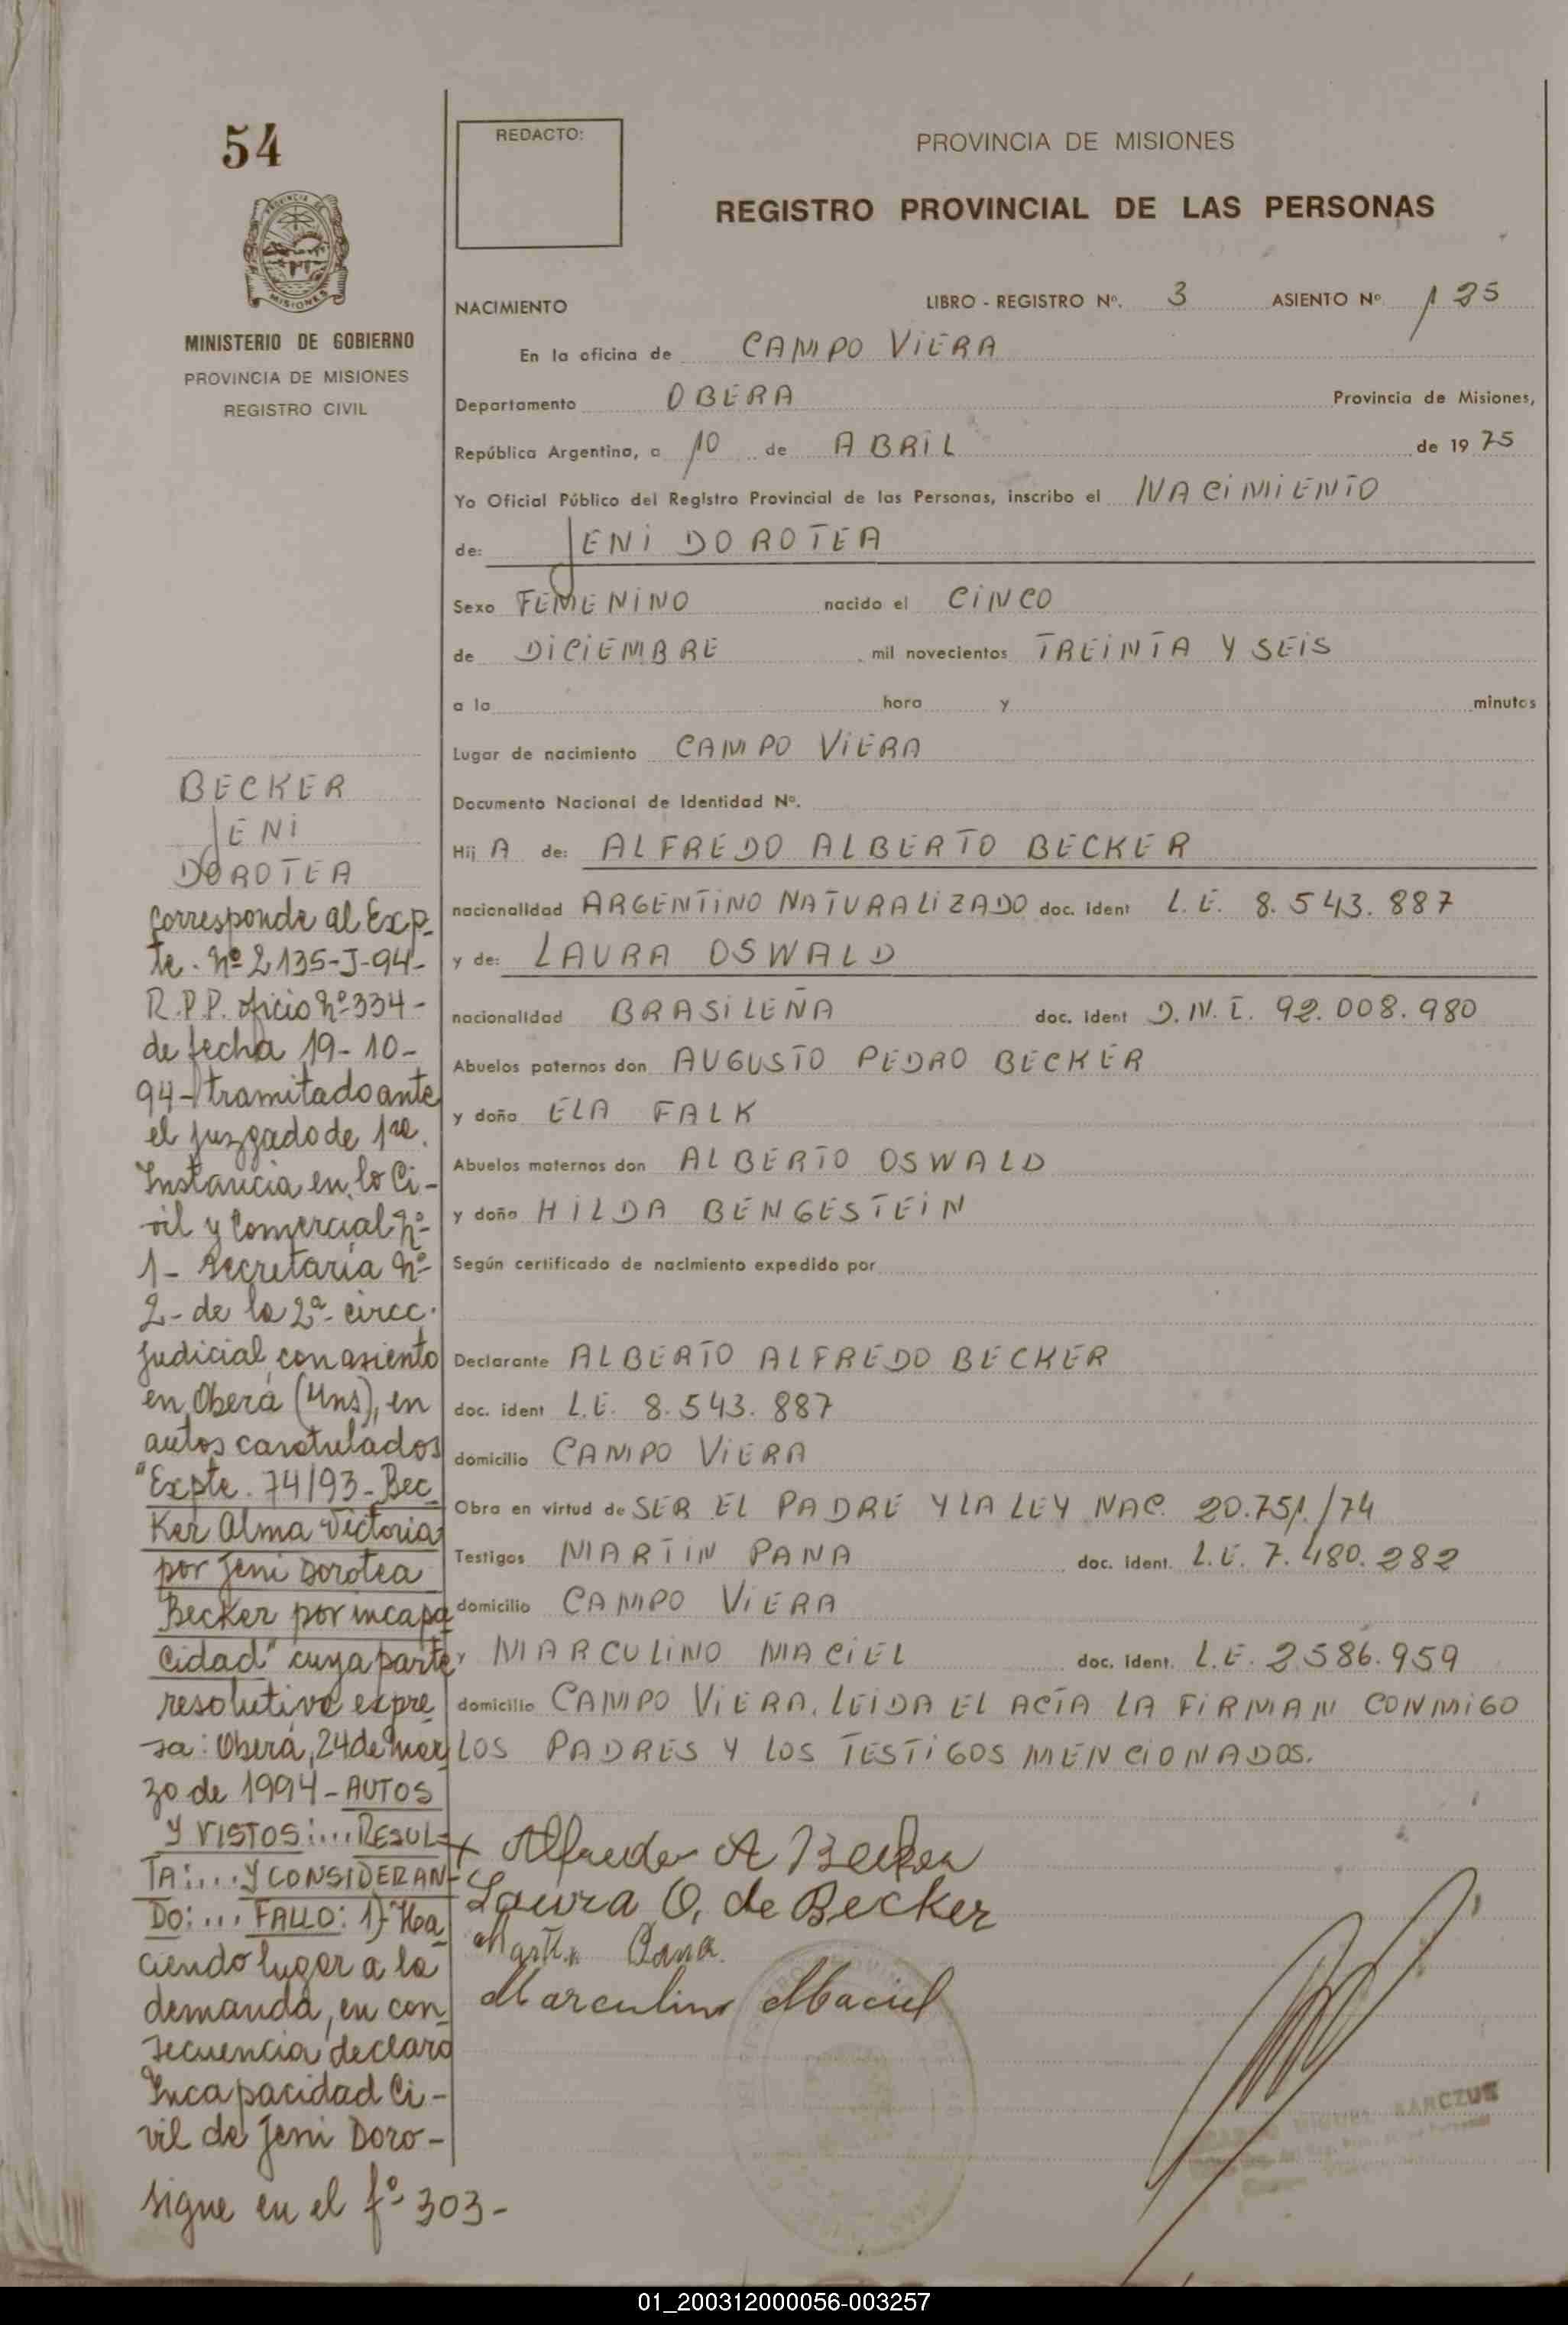 54
PROVINCIA DE MISIONES
MINISTERIO DE GOBIERNO
PROVINCIA DE MISIONES
REGISTRO CIVIL
BECKER
JENI
DOROTEA
Corresponde al Exp-
te. Nº 2135-J-94-
R.P.P. oficio Nº 334-
de fecha 19-10-
94- tramitado ante
el juzgado de 1ra.
Instancia en lo Ci-
vil y Comercial Nº
1- Secretaría Nº
2- de la 2ª- circc.
Judicial, con asiento
en Oberá (Mns), en
autos caratulados
"Expte. 74/93- Bec
Ker Alma Victoria
por Jeni Dorotea
Becker por incapa
cidad" cuya parte
resolutiva expre
sa: Oberá, 24 de mar
zo de 1994- AUTOS
Y VISTOS:... RESUL-
TA:... Y CONSIDERAN-
DO:... FALLO: 1)- Ha
ciendo lugar a la
demanda, en con
secuencia declaro
Incapacidad Ci-
vil de Jeni Doro-
sigue en el fº 303-
REDACTO:
PROVINCIA DE MISIONES
REGISTRO PROVINCIAL DE LAS PERSONAS
NACIMIENTO LIBRO - REGISTRO Nº. 3 ASIENTO Nº 125
En la oficina de CAMPO VIERA
Departamento OBERA Provincia de Misiones,
República Argentina, a 10 de ABRIL de 1975
Yo Oficial Público del Registro Provincial de las Personas, inscribo el NACIMIENTO
de: JENI DOROTEA
Sexo FEMENINO nacido el CINCO
de DICIEMBRE mil novecientos TREINTA Y SEIS
a la hora y minutos
Lugar de nacimiento CAMPO VIERA
Documento Nacional de Identidad Nº.
Hij A de: ALFREDO ALBERTO BECKER
nacionalidad ARGENTINO NATURALIZADO doc. ident L.E. 8.543.887
y de: LAURA OSWALD
nacionalidad BRASILEÑA doc. ident D.N.I. 92.008.980
Abuelos paternos don AUGUSTO PEDRO BECKER
y doña ELA FALK
Abuelos maternos don ALBERTO OSWALD
y doña HILDA BENGESTEIN
Según certificado de nacimiento expedido por
Declarante ALBERTO ALFREDO BECKER
doc. ident L.E. 8.543.887
domicilio CAMPO VIERA
Obra en virtud de SER EL PADRE Y LA LEY NAC. 20.751./74
Testigos MARTIN PANA doc. ident. L.E. 7.480.282
domicilio CAMPO VIERA
y MARCULINO MACIEL doc. ident. L.E. 2.586.959
domicilio CAMPO VIERA. LEIDA EL ACTA LA FIRMAN CONMIGO
LOS PADRES Y LOS TESTIGOS MENCIONADOS.
Alfredo A Becker
Laura O. de Becker
Martin Pana
Marculino Maciel
01_200312000056-003257